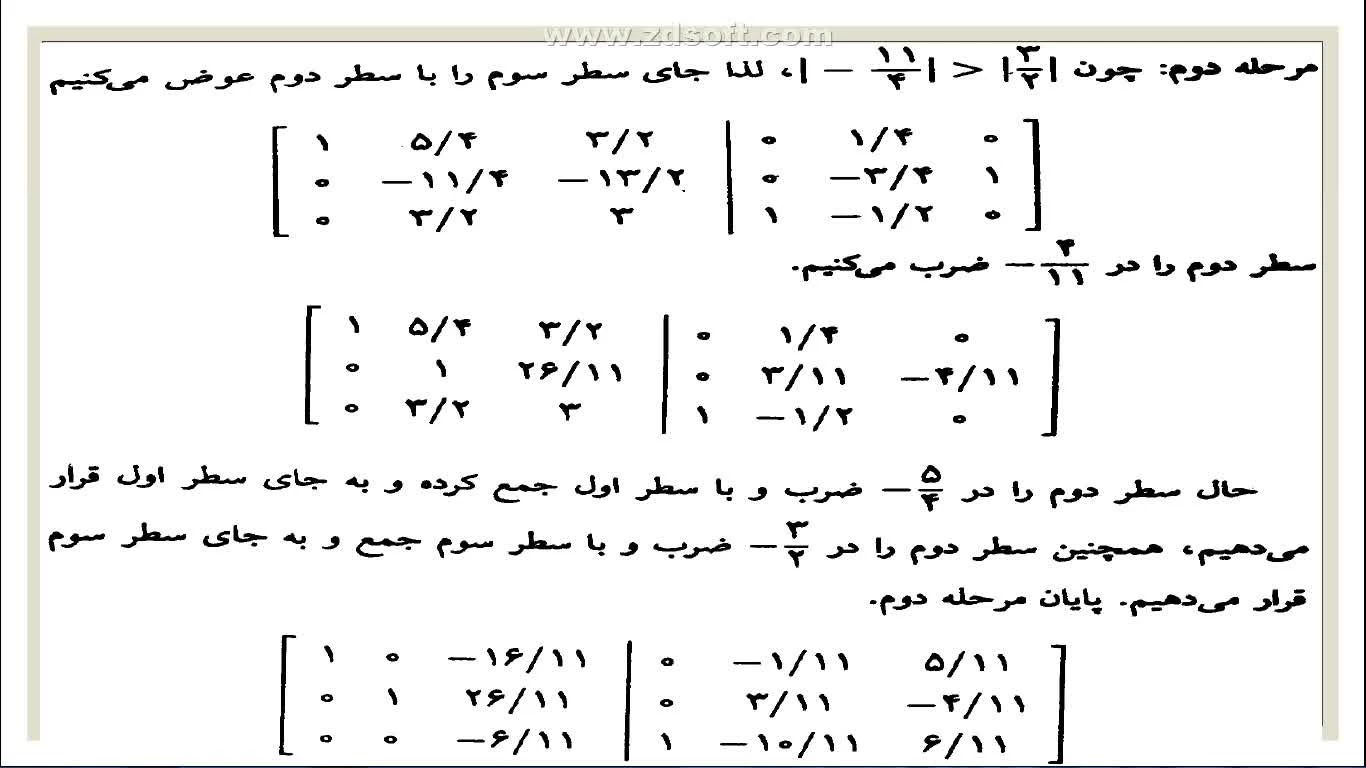 www.zdsoft.com
مرحله دوم: چون |۳/۲| < |۱۱/۴ −|، لذا جای سطر سوم را با سطر دوم عوض می‌کنیم
[ ۱ ۵/۴ ۳/۲ | ۰ ۱/۴ ۰ ]
[ ۰ −۱۱/۴ −۱۳/۲ | ۰ −۳/۴ ۱ ]
[ ۰ ۳/۲ ۳ | ۱ −۱/۲ ۰ ]
سطر دوم را در −۴/۱۱ ضرب می‌کنیم.
[ ۱ ۵/۴ ۳/۲ | ۰ ۱/۴ ۰ ]
[ ۰ ۱ ۲۶/۱۱ | ۰ ۳/۱۱ −۴/۱۱ ]
[ ۰ ۳/۲ ۳ | ۱ −۱/۲ ۰ ]
حال سطر دوم را در −۵/۴ ضرب و با سطر اول جمع کرده و به جای سطر اول قرار
می‌دهیم، همچنین سطر دوم را در −۳/۲ ضرب و با سطر سوم جمع و به جای سطر سوم
قرار می‌دهیم. پایان مرحله دوم.
[ ۱ ۰ −۱۶/۱۱ | ۰ −۱/۱۱ ۵/۱۱ ]
[ ۰ ۱ ۲۶/۱۱ | ۰ ۳/۱۱ −۴/۱۱ ]
[ ۰ ۰ −۶/۱۱ | ۱ −۱۰/۱۱ ۶/۱۱ ]